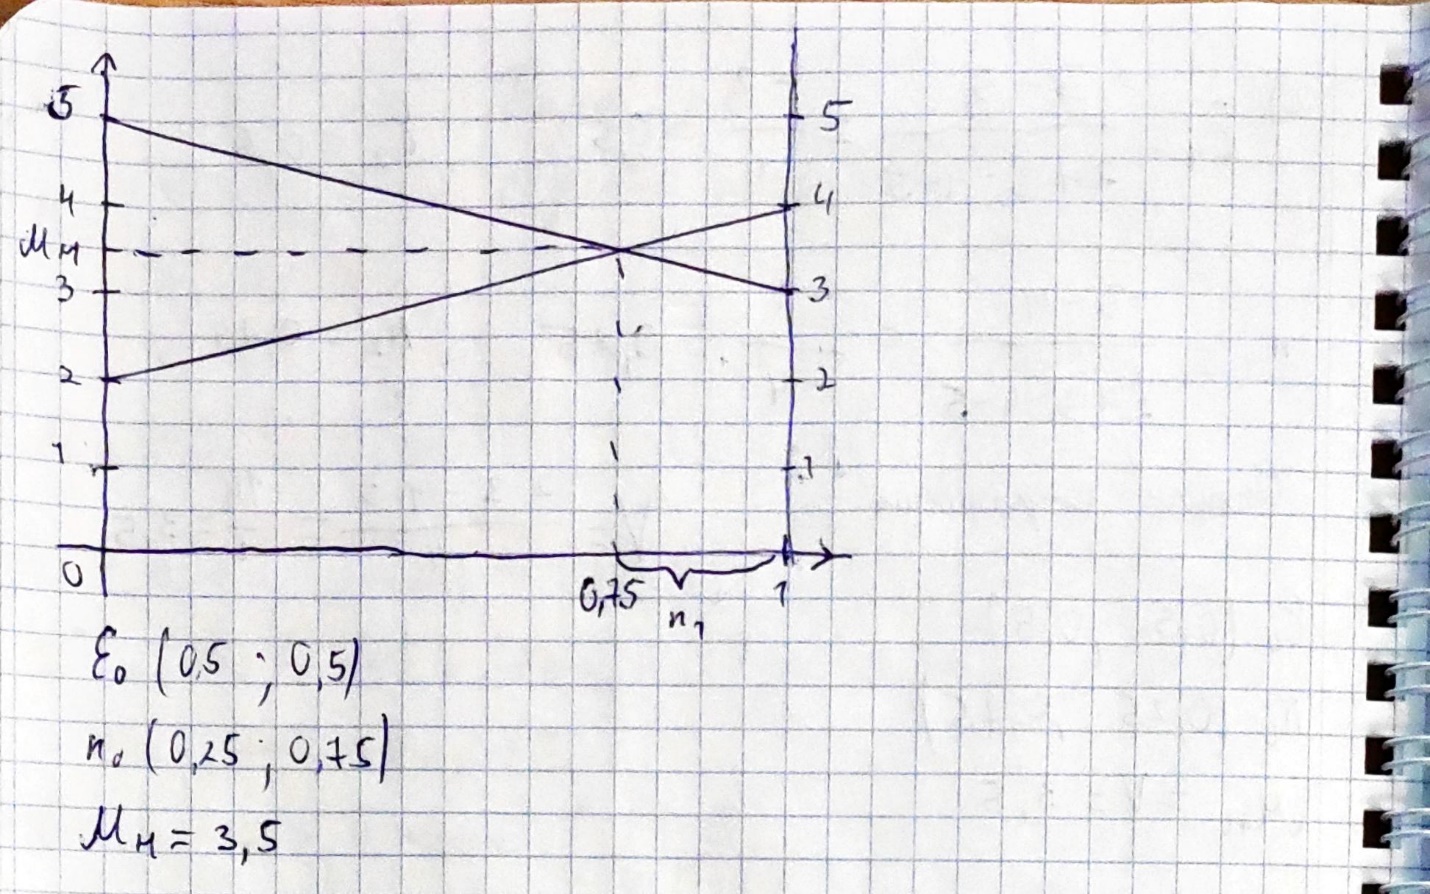 5 5
4 4
Mн
3 3
2 2
1 1
0 0,75 1
n₁
ξ₀ (0,5 ; 0,5)
n₀ (0,25 ; 0,75)
Mн = 3,5